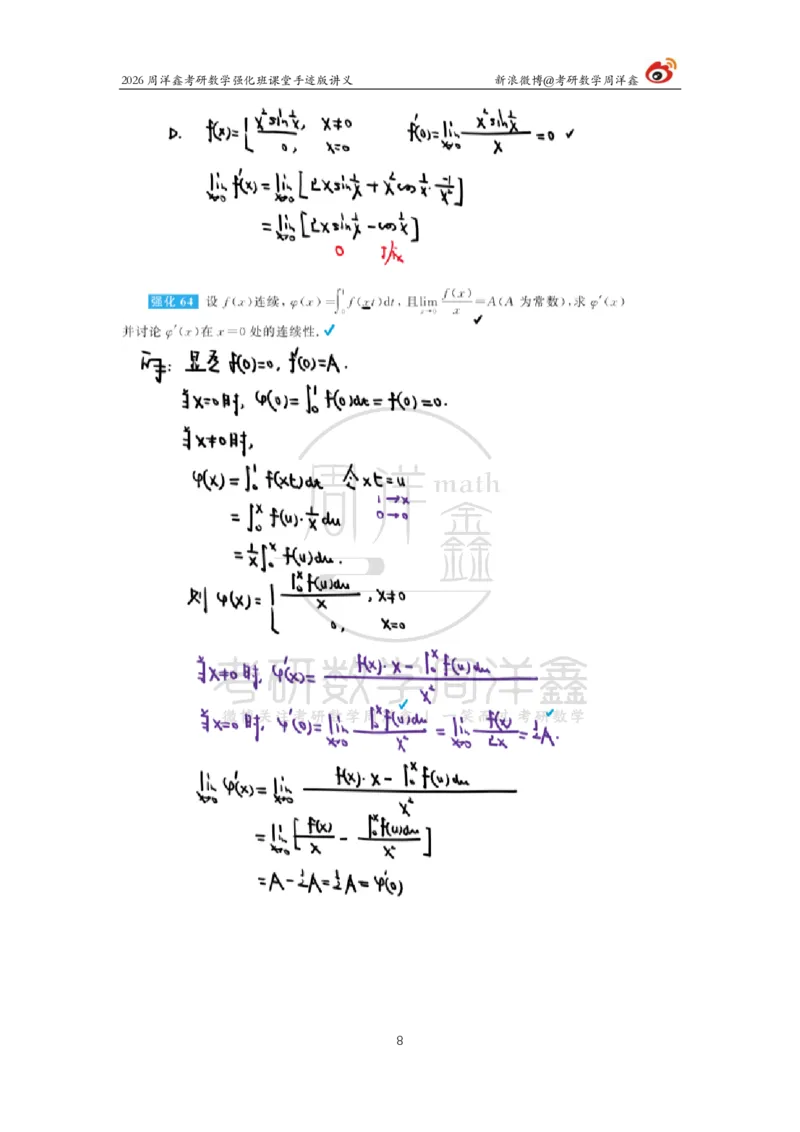 2026 周洋鑫考研数学强化班课堂手迹版讲义 新浪微博@考研数学周洋鑫
D. f(x)={ x²sin 1/x, x≠0 f'(0)=lim x→0 x²sin 1/x / x =0 ✓
0, x=0
lim x→0 f'(x)=lim x→0 [2xsin 1/x + x²cos 1/x · -1/x²]
=lim x→0 [2xsin 1/x - cos 1/x]
0 不存在
强化 64 设 f(x)连续,φ(x)=∫₀¹ f(xt)dt,且lim x→0 f(x)/x =A(A 为常数),求 φ'(x)
✓
并讨论 φ'(x)在 x=0 处的连续性. ✓
解: 显然 f(0)=0, f'(0)=A.
当x=0时, φ(0)=∫₀¹ f(0)dt = f(0)=0.
当x≠0时,
φ(x)=∫₀¹ f(xt)dt 令xt=u
1→x
=∫₀ˣ f(u)·1/x du 0→0
=1/x ∫₀ˣ f(u)du.
则 φ(x)={ ∫₀ˣ f(u)du / x , x≠0
0, x=0
当x≠0时, φ'(x)= f(x)·x - ∫₀ˣ f(u)du / x²
当x=0时, φ'(0)=lim x→0 ∫₀ˣ f(u)du / x² = lim x→0 f(x)/2x = ½A.
lim x→0 φ'(x)=lim x→0 f(x)·x - ∫₀ˣ f(u)du / x²
=lim x→0 [ f(x)/x - ∫₀ˣ f(u)du / x² ]
=A-½A=½A=φ'(0)
周洋鑫 math
考研数学周洋鑫
8